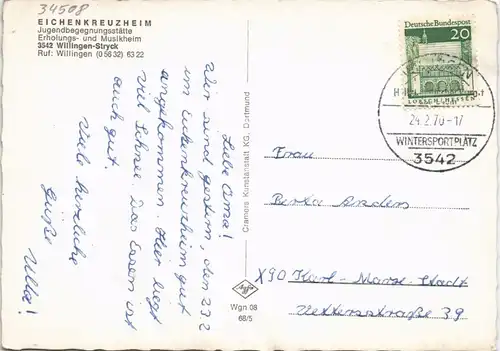 34508
EICHENKREUZHEIM
Jugendbegegnungsstätte
Erholungs- und Musikheim
3542 Willingen-Stryck
Ruf: Willingen (0 56 32) 63 22
Liebe Oma!
Wir sind gestern, den 23.2
im Eichenkreuzheim gut
angekommen. Hier liegt
viel Schnee. Das Essen ist
auch gut.
Viele herzliche
Grüße
Ulla!
Cramers Kunstanstalt KG, Dortmund
Agfa
Wgn 08
68/5
Deutsche Bundespost
20
LORSCH/HESSEN
24.2.70-17
WINTERSPORTPLATZ
3542
Frau
Berta Anders
X90 Karl-Marx-Stadt
Vettersstraße 39